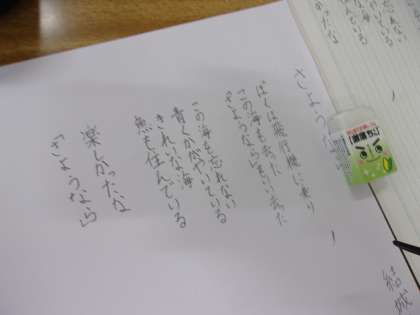 さよう
結城
ぼくは飛行機に乗り
この海を去った
「さようなら」をいい去った
この海を忘れない
青くかがやいている
きれいな海
魚も住んでいる
楽しかったな
「さようなら」